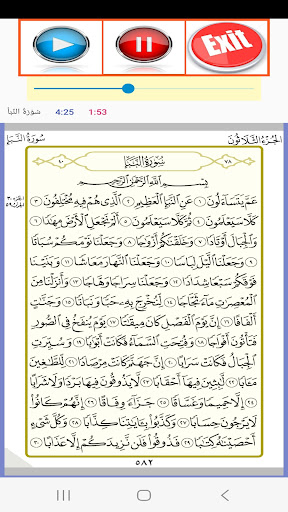 Exit
سورة النبأ 4:25 1:53
الجزء الثلاثون سورة النبإ
٧٨ سورة النبإ ٤٠
بِسْمِ اللَّهِ الرَّحْمَٰنِ الرَّحِيمِ
عَمَّ يَتَسَاءَلُونَ ١ عَنِ النَّبَإِ الْعَظِيمِ ٢ الَّذِي هُمْ فِيهِ مُخْتَلِفُونَ ٣
كَلَّا سَيَعْلَمُونَ ٤ ثُمَّ كَلَّا سَيَعْلَمُونَ ٥ أَلَمْ نَجْعَلِ الْأَرْضَ مِهَٰدًا ٦
وَالْجِبَالَ أَوْتَادًا ٧ وَخَلَقْنَٰكُمْ أَزْوَٰجًا ٨ وَجَعَلْنَا نَوْمَكُمْ سُبَاتًا
٩ وَجَعَلْنَا اللَّيْلَ لِبَاسًا ١٠ وَجَعَلْنَا النَّهَارَ مَعَاشًا ١١ وَبَنَيْنَا
فَوْقَكُمْ سَبْعًا شِدَادًا ١٢ وَجَعَلْنَا سِرَاجًا وَهَّاجًا ١٣ وَأَنزَلْنَا مِنَ
الْمُعْصِرَٰتِ مَاءً ثَجَّاجًا ١٤ لِّنُخْرِجَ بِهِ حَبًّا وَنَبَاتًا ١٥ وَجَنَّٰتٍ
أَلْفَافًا ١٦ إِنَّ يَوْمَ الْفَصْلِ كَانَ مِيقَٰتًا ١٧ يَوْمَ يُنفَخُ فِي الصُّورِ
فَتَأْتُونَ أَفْوَاجًا ١٨ وَفُتِحَتِ السَّمَاءُ فَكَانَتْ أَبْوَٰبًا ١٩ وَسُيِّرَتِ
الْجِبَالُ فَكَانَتْ سَرَابًا ٢٠ إِنَّ جَهَنَّمَ كَانَتْ مِرْصَادًا ٢١ لِّلطَّٰغِينَ
مَـَٔابًا ٢٢ لَّٰبِثِينَ فِيهَا أَحْقَابًا ٢٣ لَّا يَذُوقُونَ فِيهَا بَرْدًا وَلَا شَرَابًا
٢٤ إِلَّا حَمِيمًا وَغَسَّاقًا ٢٥ جَزَاءً وِفَاقًا ٢٦ إِنَّهُمْ كَانُوا
لَا يَرْجُونَ حِسَابًا ٢٧ وَكَذَّبُوا بِـَٔايَٰتِنَا كِذَّابًا ٢٨ وَكُلَّ شَيْءٍ
أَحْصَيْنَٰهُ كِتَٰبًا ٢٩ فَذُوقُوا فَلَن نَّزِيدَكُمْ إِلَّا عَذَابًا ٣٠
٥٨٢